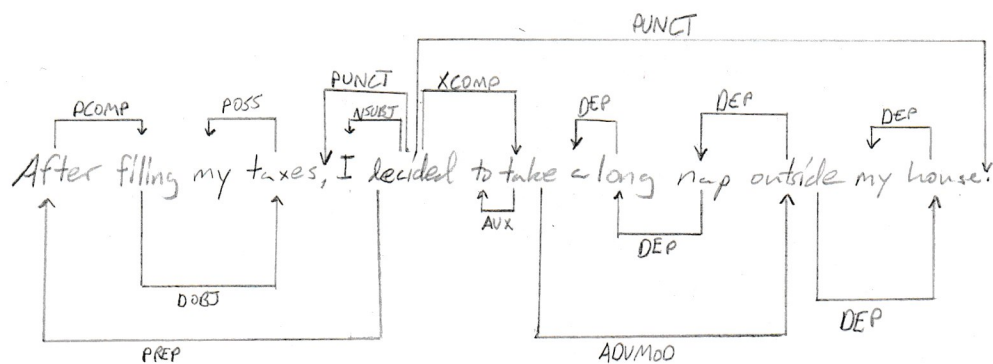 PUNCT
PUNCT XCOMP
PCOMP POSS NSUBJ DEP DEP DEP
After filling my taxes, I decided to take a long nap outside my house.
AUX
DEP
DOBJ DEP
PREP ADVMOD